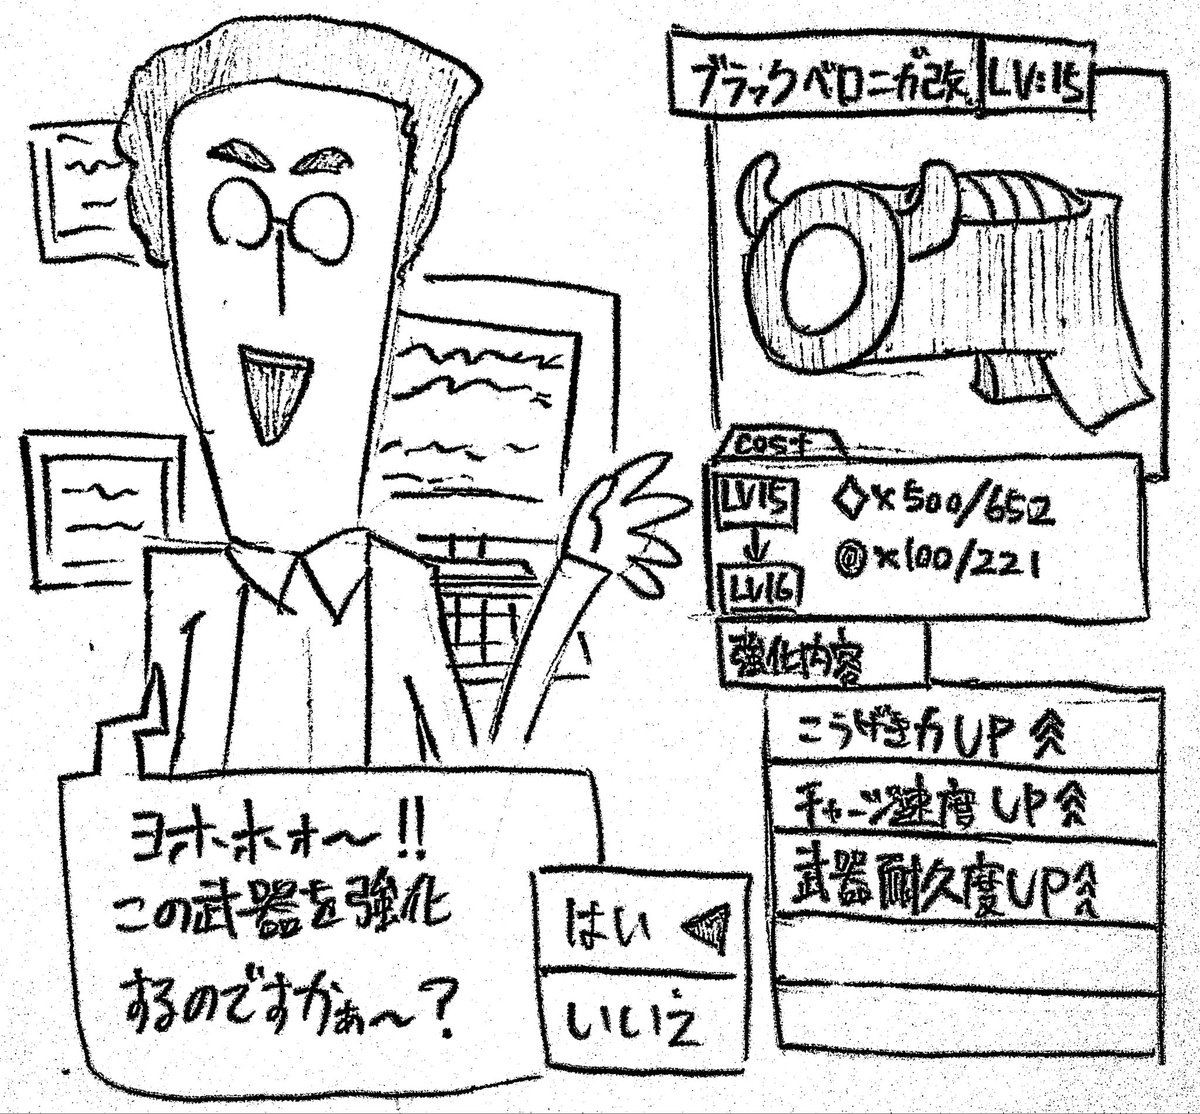 ブラックベロニガ改
LV:15
cost
LV15
↓
LV16
◇×500/652
◎×100/221
強化内容
こうげき力UP
チャージ速度UP
武器耐久度UP
ヨホホォ〜!!
この武器を強化
するのですかぁ〜?
はい ◀
いいえ